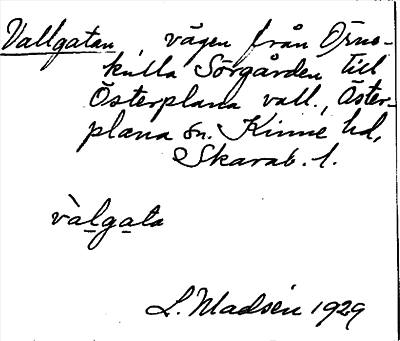 Vallgatan, vägen från Örno-
kulla Sörgården till
Österplana vall., Öster-
plana sn. Kinne hd,
Skarab. l.
vàlgata
L. Madsén 1929